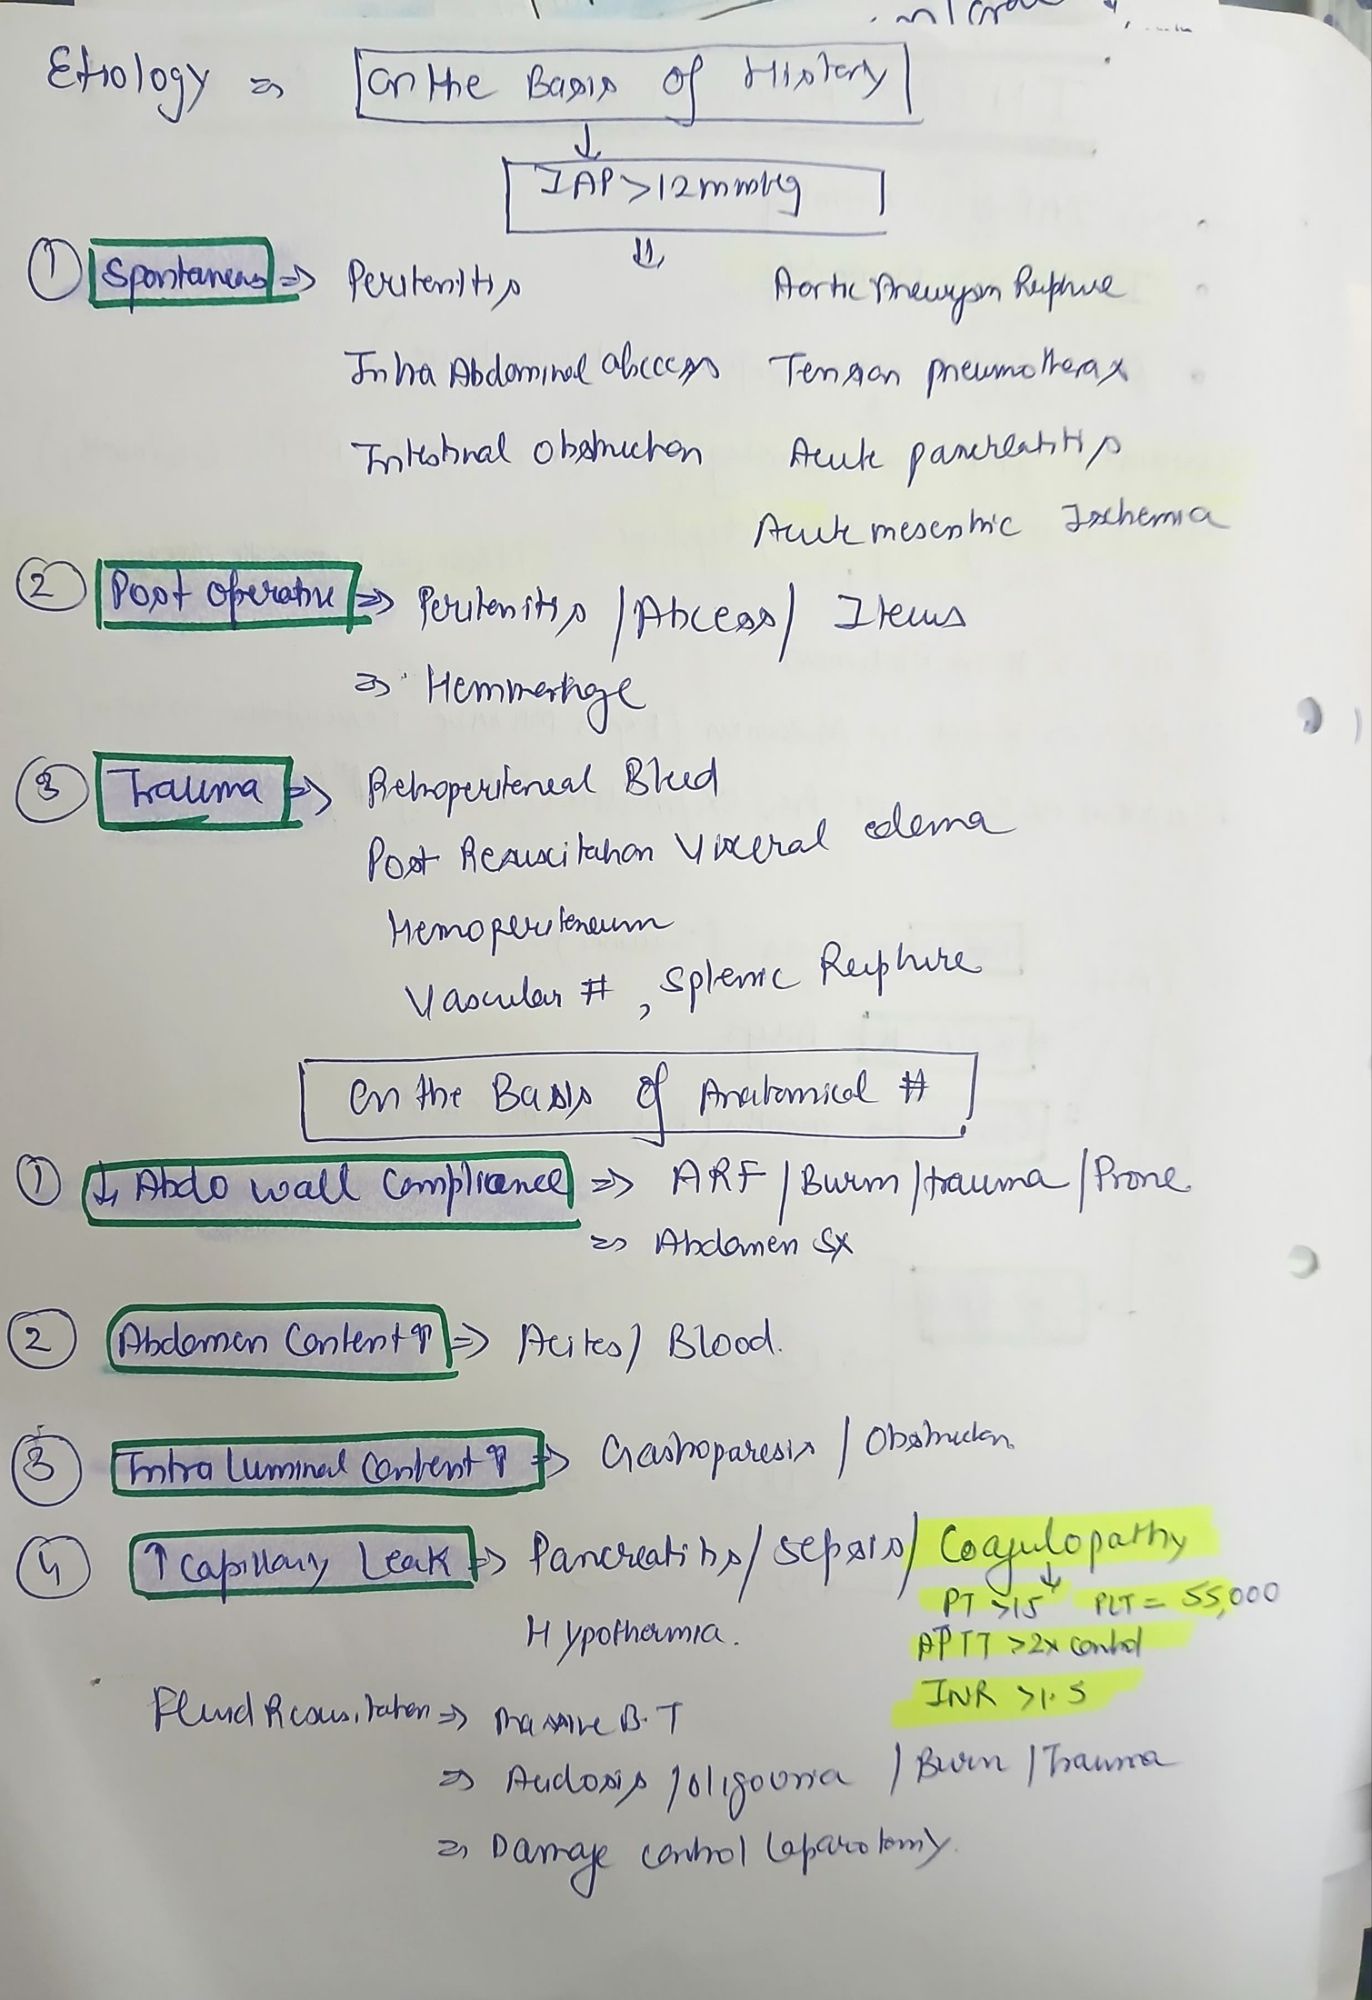 Etiology ⇒ On the Basis of History
↓
IAP > 12 mmHg
⇓
① Spontaneous ⇒ Peritonitis Aortic Aneurysm Rupture
Intra Abdominal abccess Tension pneumothorax
Intestinal Obstruction Acute pancreatitis
Acute mesentric Ischemia
② Post operative ⇒ Peritonitis / Abcess / Ileus
⇒ Hemmorhage
③ Trauma ⇒ Retroperitoneal Bleed
Post Resuscitation Visceral edema
Hemoperitoneum
Vascular #, Splenic Rupture
On the Basis of Anatomical #
① ↓ Abdo wall Compliance ⇒ ARF / Burn / trauma / Prone
⇒ Abdomen Sx
② Abdomen Content ↑ ⇒ Acites / Blood.
③ Intra Luminal Content ↑ ⇒ Gastroparesis / Obstruction
④ ↑ Capillary Leak ⇒ Pancreatitis / Sepsis / Coagulopathy
↓
PT >15 PLT = 55,000
Hypothermia. APTT >2x control
INR >1.5
Fluid Resusitation ⇒ Massive B.T
⇒ Acidosis / oligouria / Burn / Trauma
⇒ Damage control laparotomy.